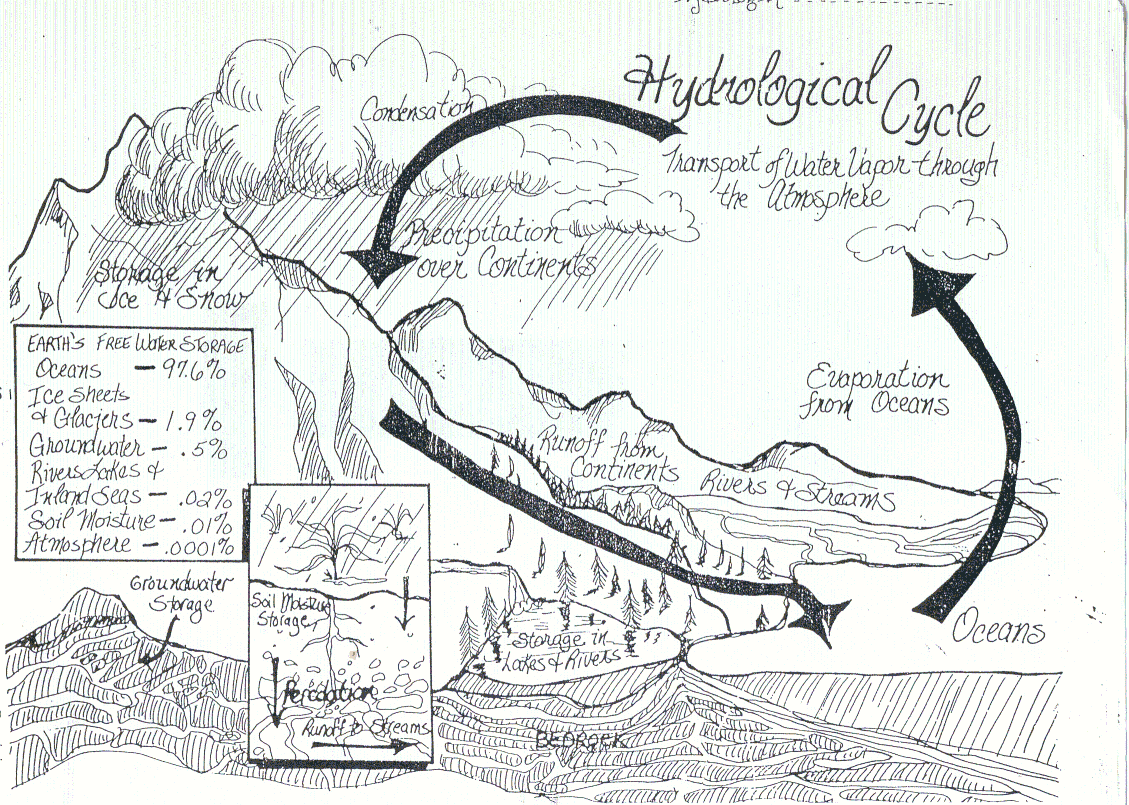 Hydrological
Cycle
Transport of Water Vapor through
the Atmosphere
Condensation
Precipitation
over Continents
Storage in
Ice & Snow
EARTH'S FREE WATER STORAGE
Oceans — 97.6%
Ice Sheets
& Glaciers — 1.9%
Groundwater — .5%
Rivers Lakes &
Inland Seas — .02%
Soil Moisture — .01%
Atmosphere — .0001%
Evaporation
from Oceans
Runoff from
Continents
Rivers & Streams
Oceans
Groundwater
Storage
Soil Moisture
Storage
Percolation
Runoff to Streams
Storage in
Lakes & Rivers
BEDROCK